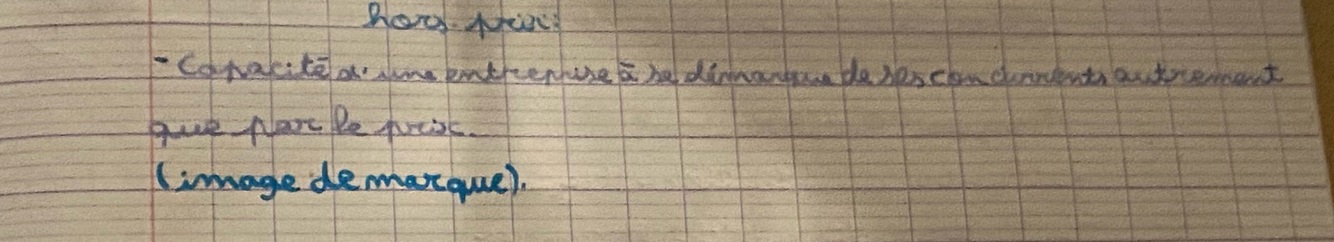 hors prix:
- Capacité d'une entreprise à se démarque de ses concurrents autrement
que par le prix.
(image de marque).